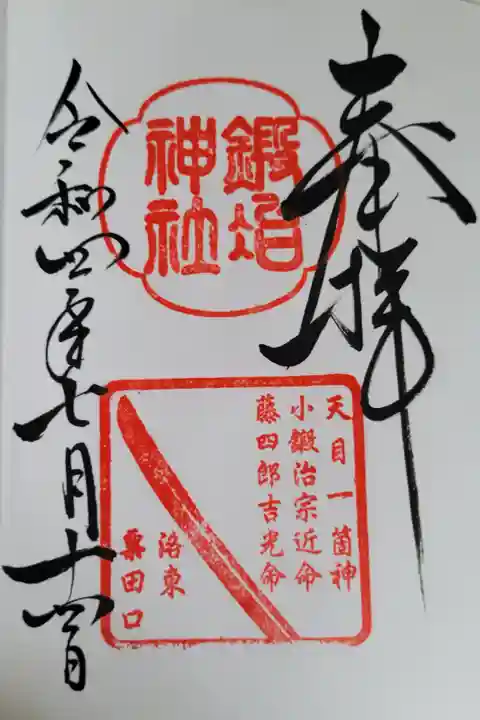 奉拝
鍛冶
神社
天目一箇神
小鍛治宗近命
藤四郎吉光命
洛東
粟田口
令和四年七月十四日